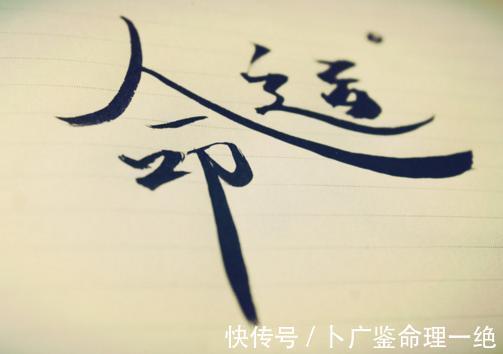 命运
快传号 / 卜广鉴命理一绝